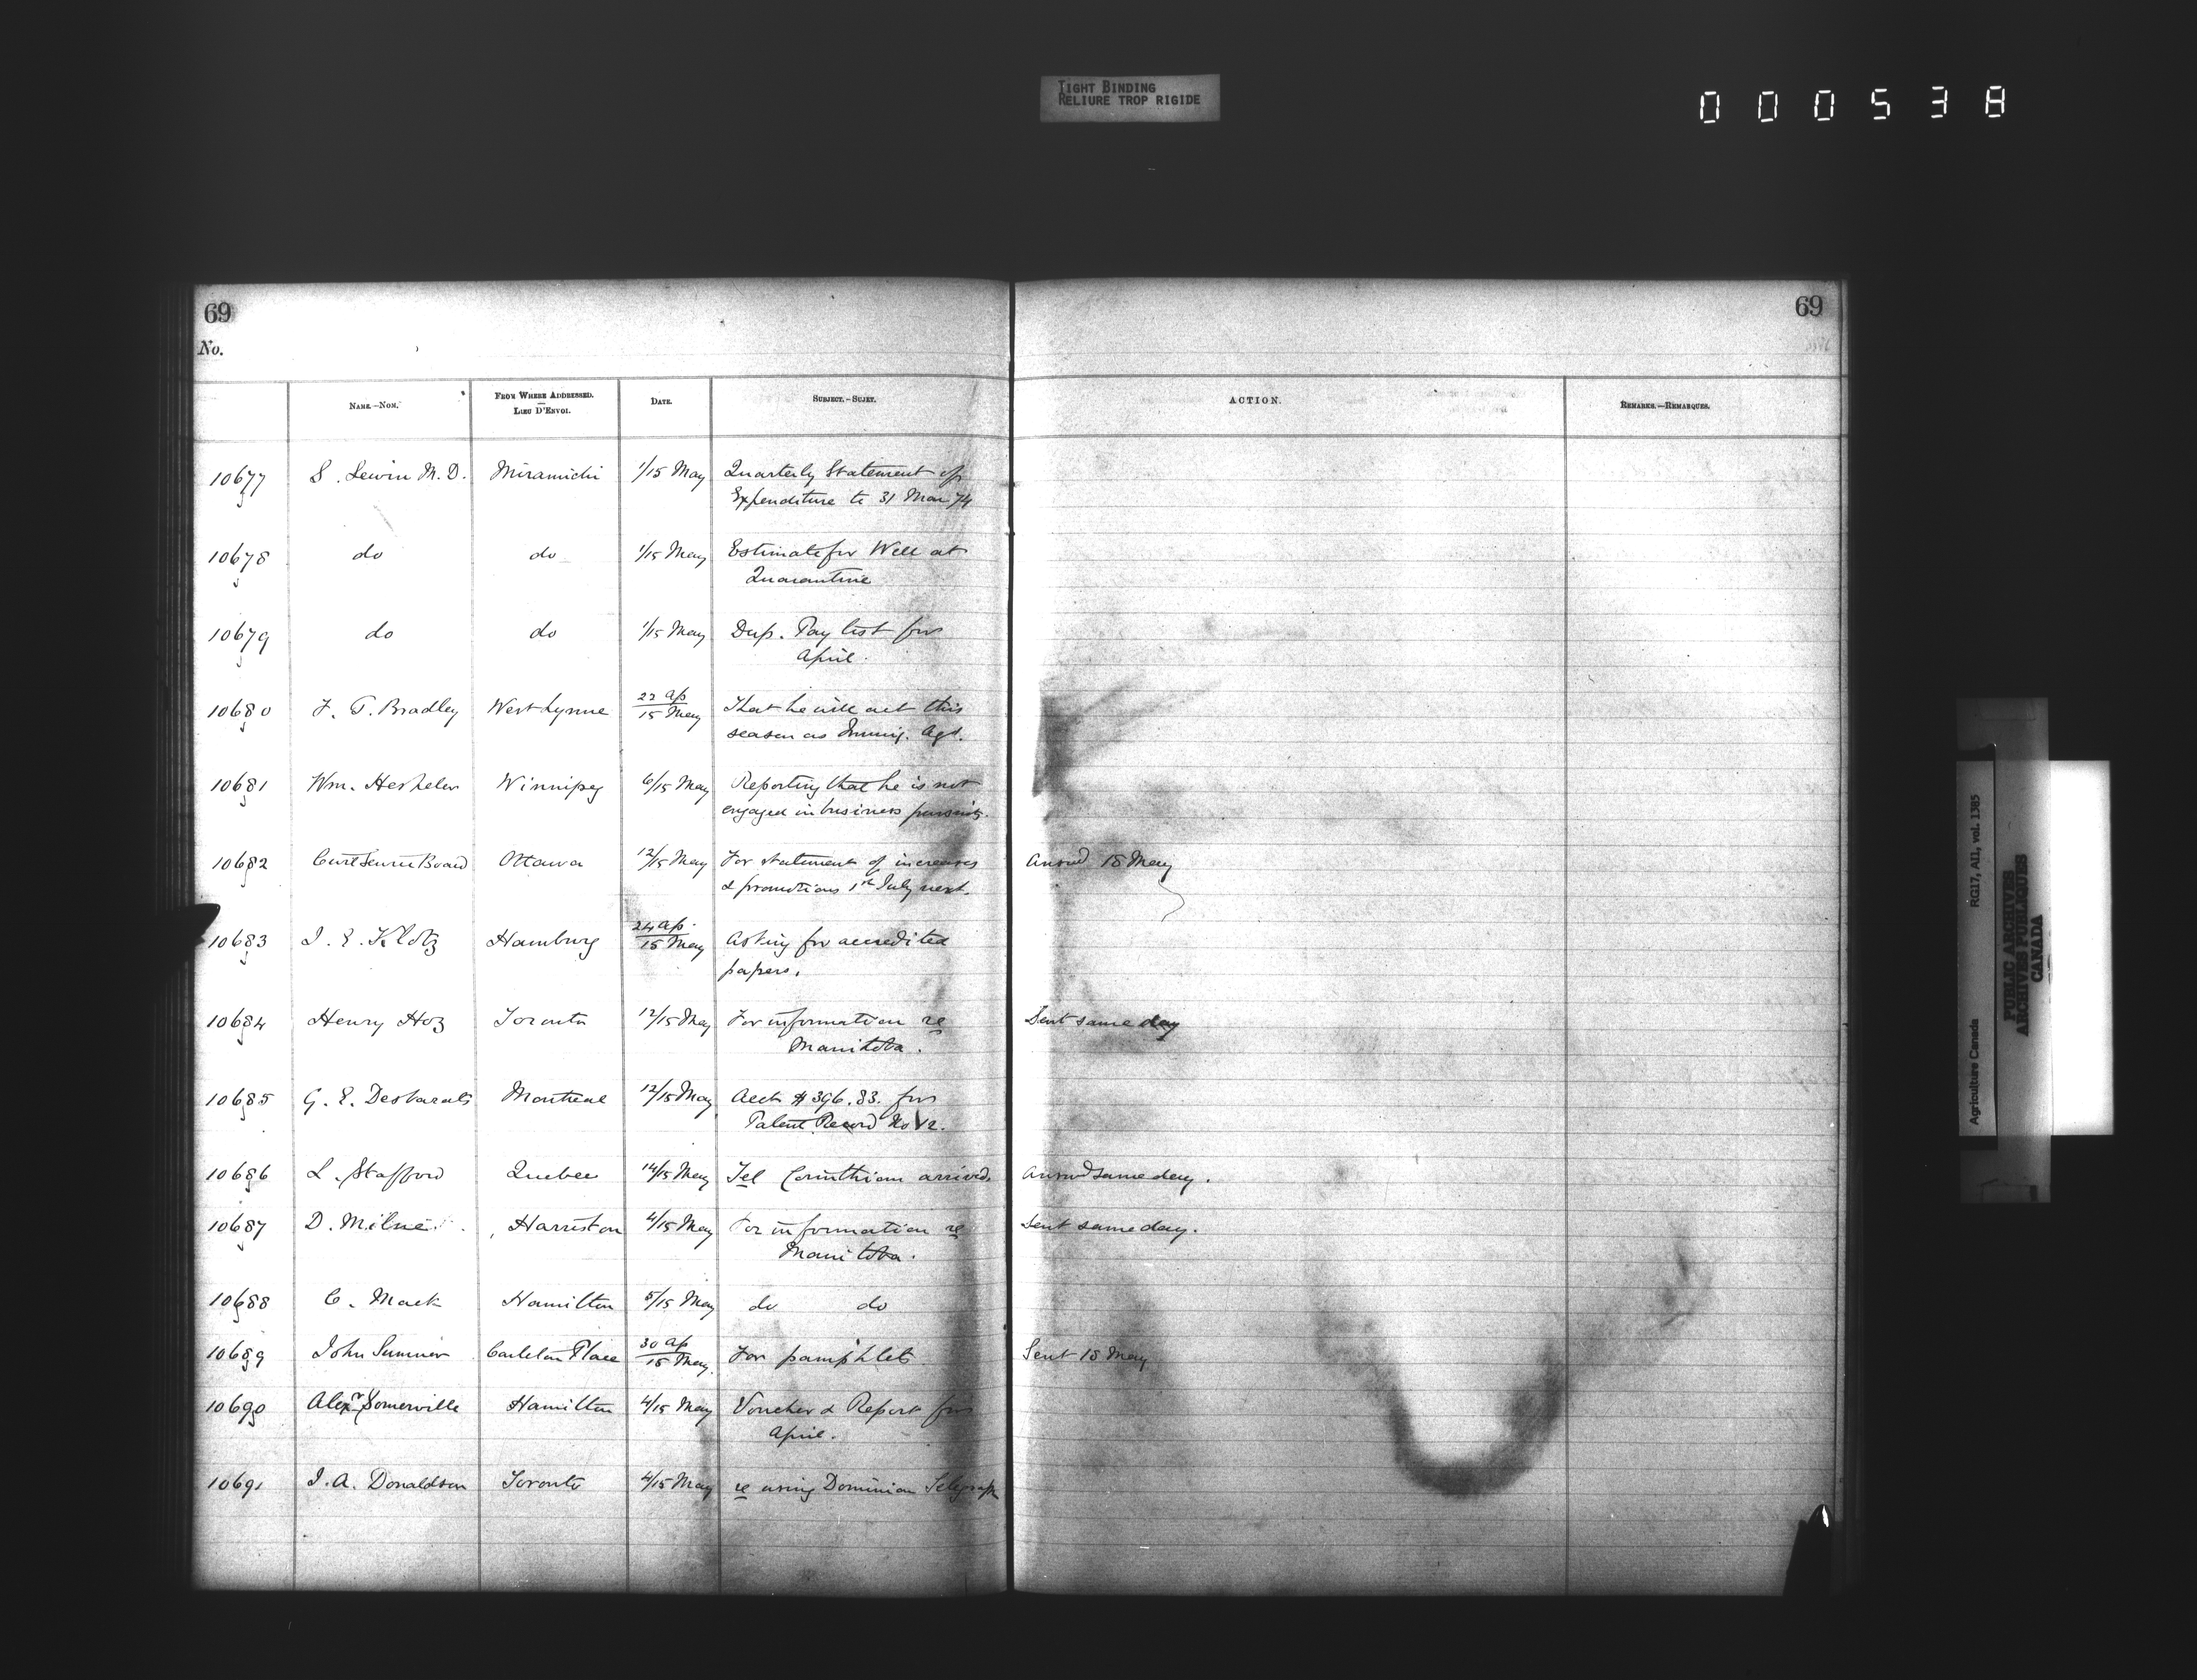 TIGHT BINDING
RELIURE TROP RIGIDE
000538
69
69
No.
NAME.—NOM.
FROM WHERE ADDRESSED.
—
LIEU D'ENVOI.
DATE.
SUBJECT.—SUJET.
ACTION.
REMARKS.—REMARQUES.
10677 S. Lewin M.D. Miramichi 1/15 May Quarterly Statement of
Expenditure to 31 Mar 74
10678 do do 1/15 May Estimate for Well at
Quarantine
10679 do do 1/15 May Dup. Pay list for
April.
10680 F. T. Bradley West Lynne 22 Ap/15 May That he will act this
season as Immig. Agt.
10681 Wm. Hespeler Winnipeg 6/15 May Reporting that he is not
engaged in business pursuits.
10682 Civil Service Board Ottawa 12/15 May For statement of increases Answd 18 May
& promotions 1st July next.
10683 J. E. Klotz Hamburg 24 Ap./15 May Asking for accredited
papers.
10684 Henry Hoz Toronto 12/15 May For information re Sent same day
Manitoba.
10685 G. E. Desbarats Montreal 12/15 May Acct $396.83. for
Patent Record No 12.
10686 L. Stafford Quebec 14/15 May Tel Corinthian arrived. Answd same day.
10687 D. Milne Harriston 4/15 May For information re Sent same day.
Manitoba.
10688 C. Mack Hamilton 5/15 May do do
10689 John Sumner Carleton Place 30 Ap/15 May. For pamphlets Sent 18 May
10690 Alexr Somerville Hamilton 4/15 May Voucher & Report for
April.
10691 J. A. Donaldson Toronto 4/15 May re using Dominion Telegraph
Agriculture Canada RG17, AII, vol. 1385
PUBLIC ARCHIVES
ARCHIVES PUBLIQUES
CANADA